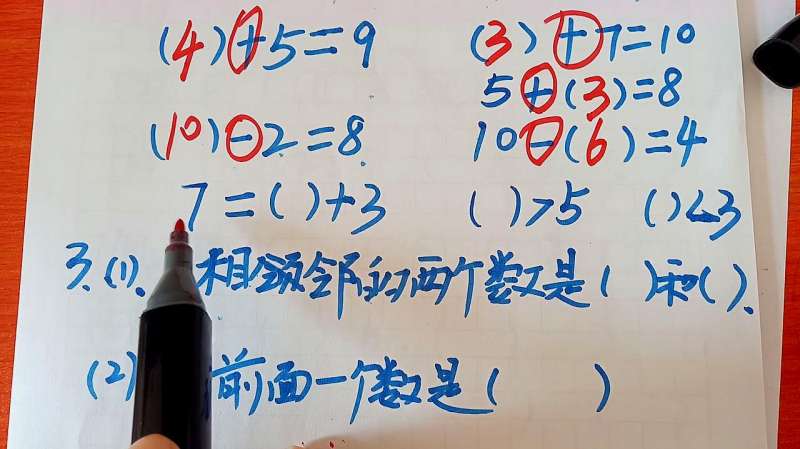 (4)+5=9 (3)+7=10
5+(3)=8
(10)-2=8 10-(6)=4
7=( )+3 ( )>5 ( )<3
3.(1). 相领邻的两个数是( )和( ).
(2) 前面一个数是( )